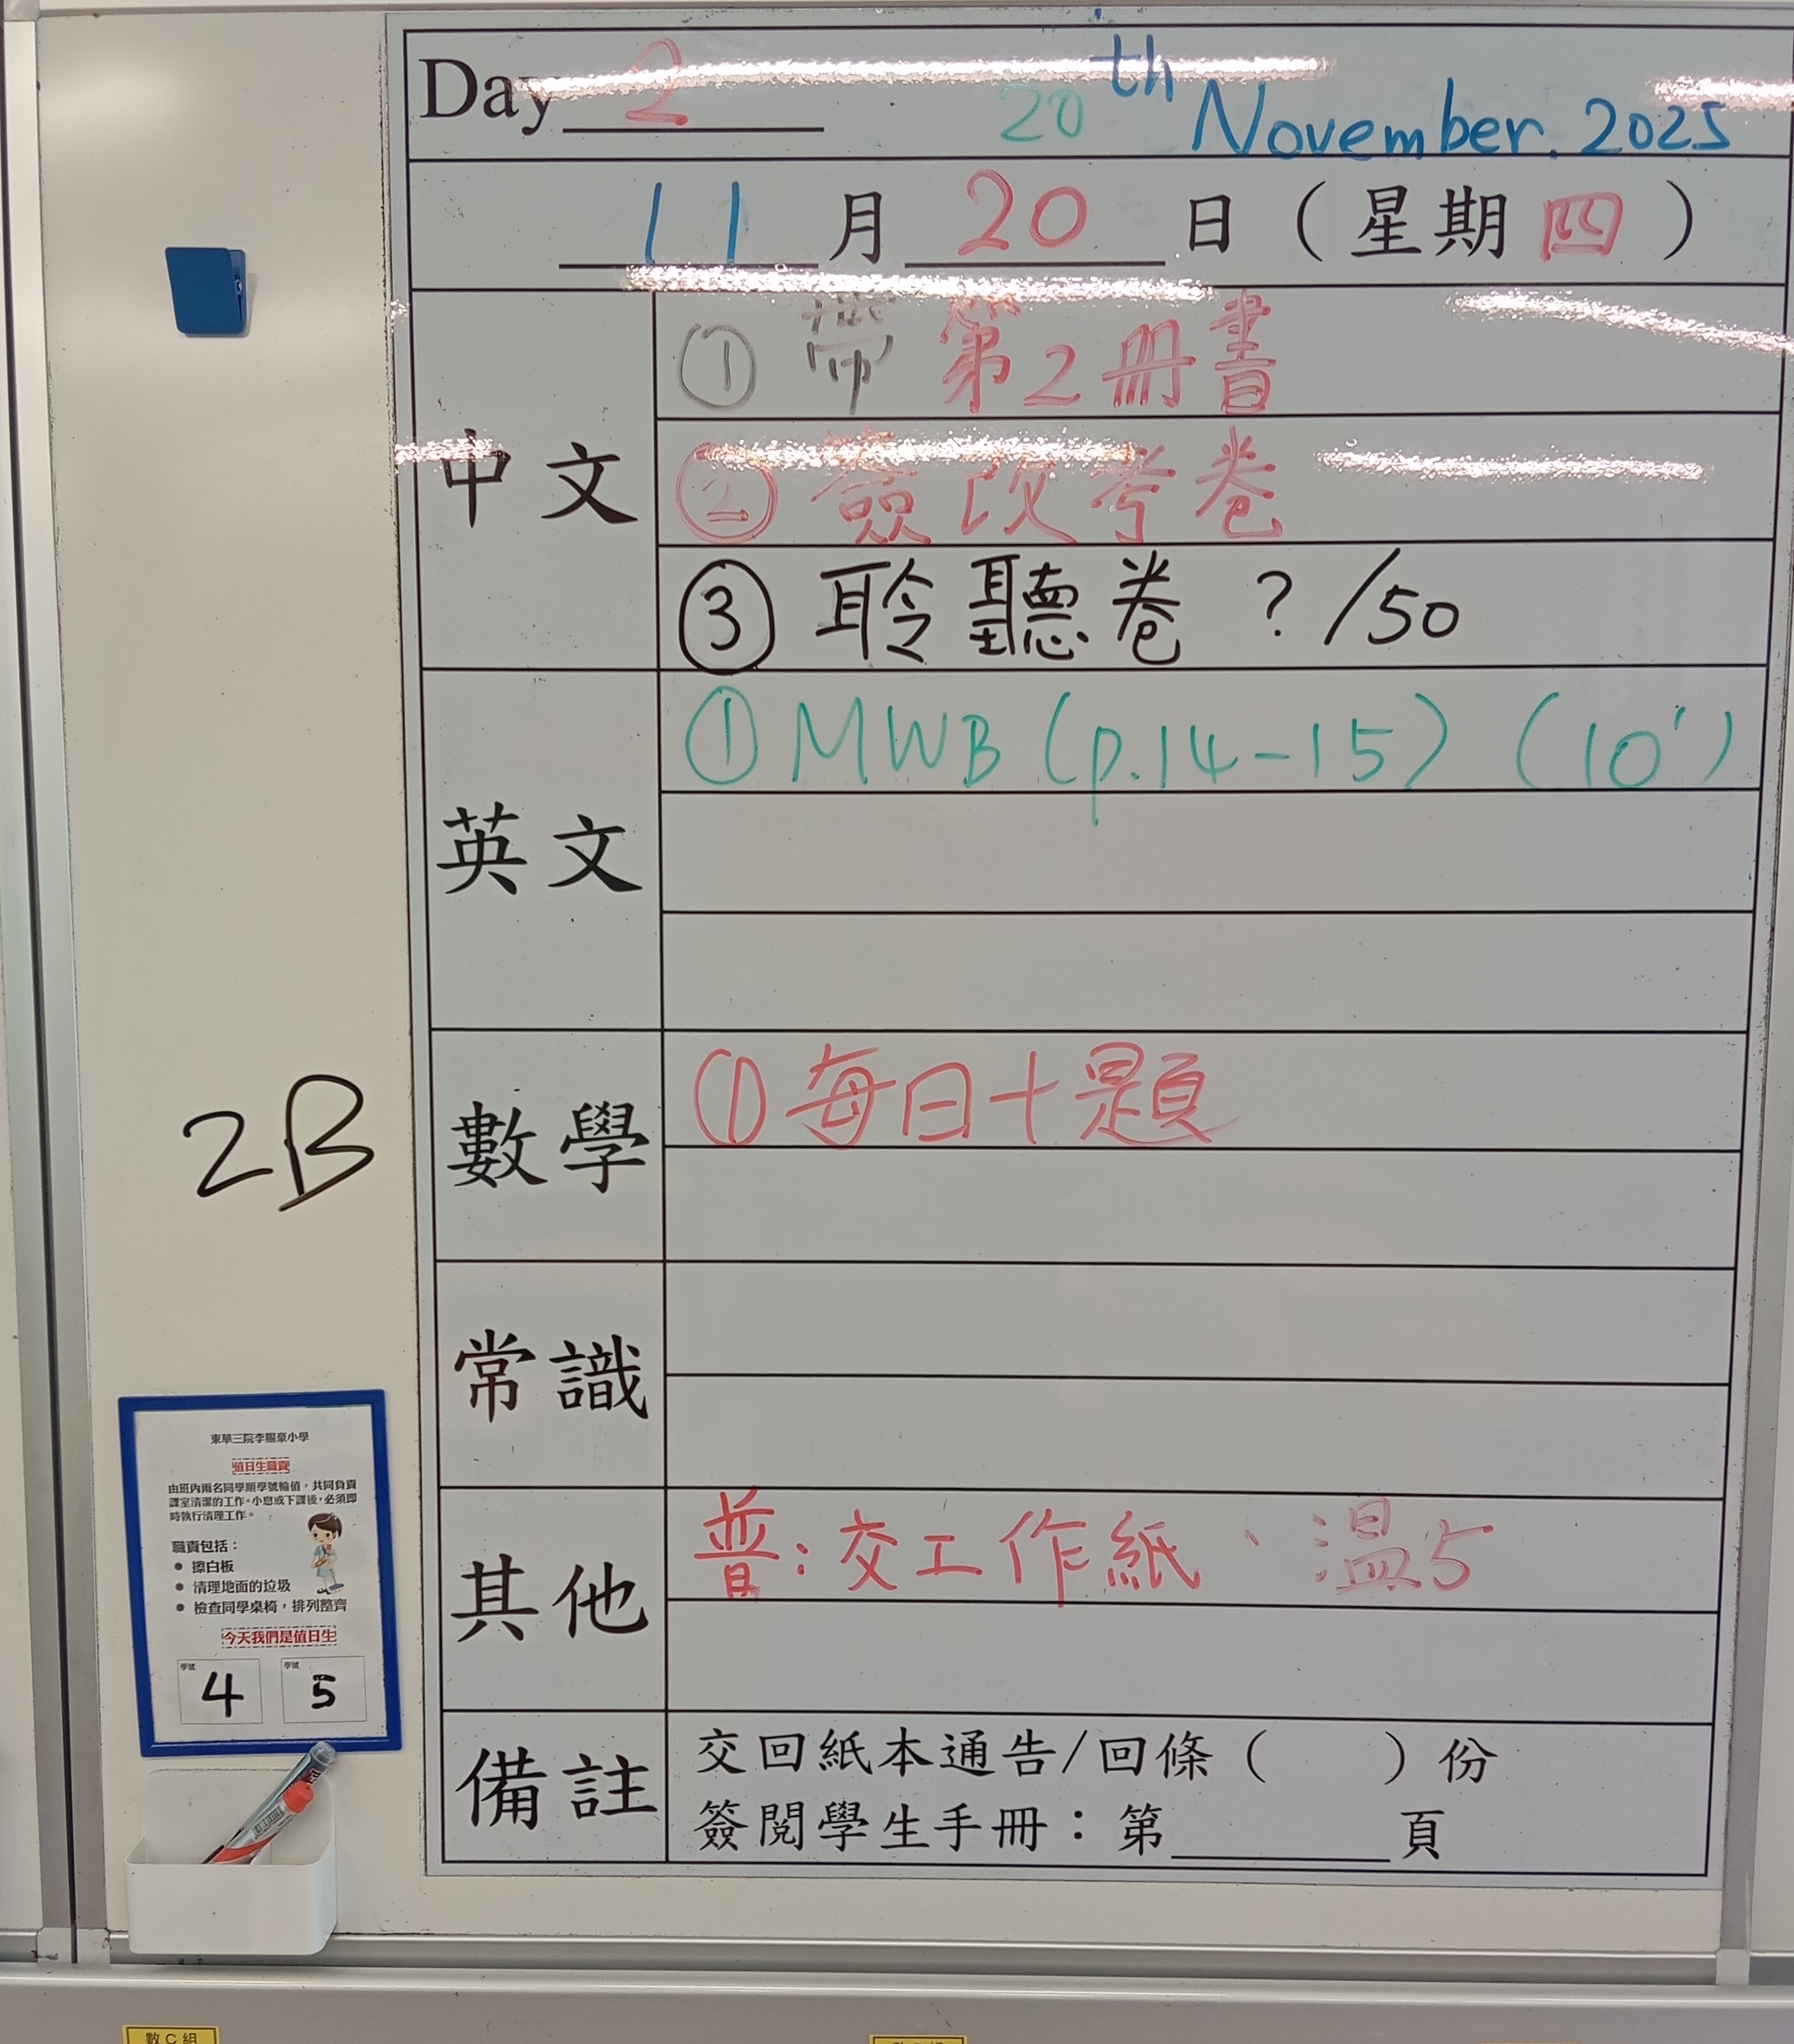 Day 2 20th November. 2025
11月20日（星期四）
中文
① 帶 第2冊書
② 簽改考卷
③ 聆聽卷 ? /50
英文
① MWB (p.14-15) (10')
數學
① 每日十題
常識
其他
普:交工作紙、溫5
備註
交回紙本通告/回條（ ）份
簽閱學生手冊：第______頁
2B
東華三院李賜豪小學
值日生職責
由班內兩名同學順學號輪值，共同負責
課室清潔的工作。小息或下課後，必須即
時執行清理工作。
職責包括：
● 擦白板
● 清理地面的垃圾
● 檢查同學桌椅，排列整齊
今天我們是值日生
學號 4 學號 5
數C組